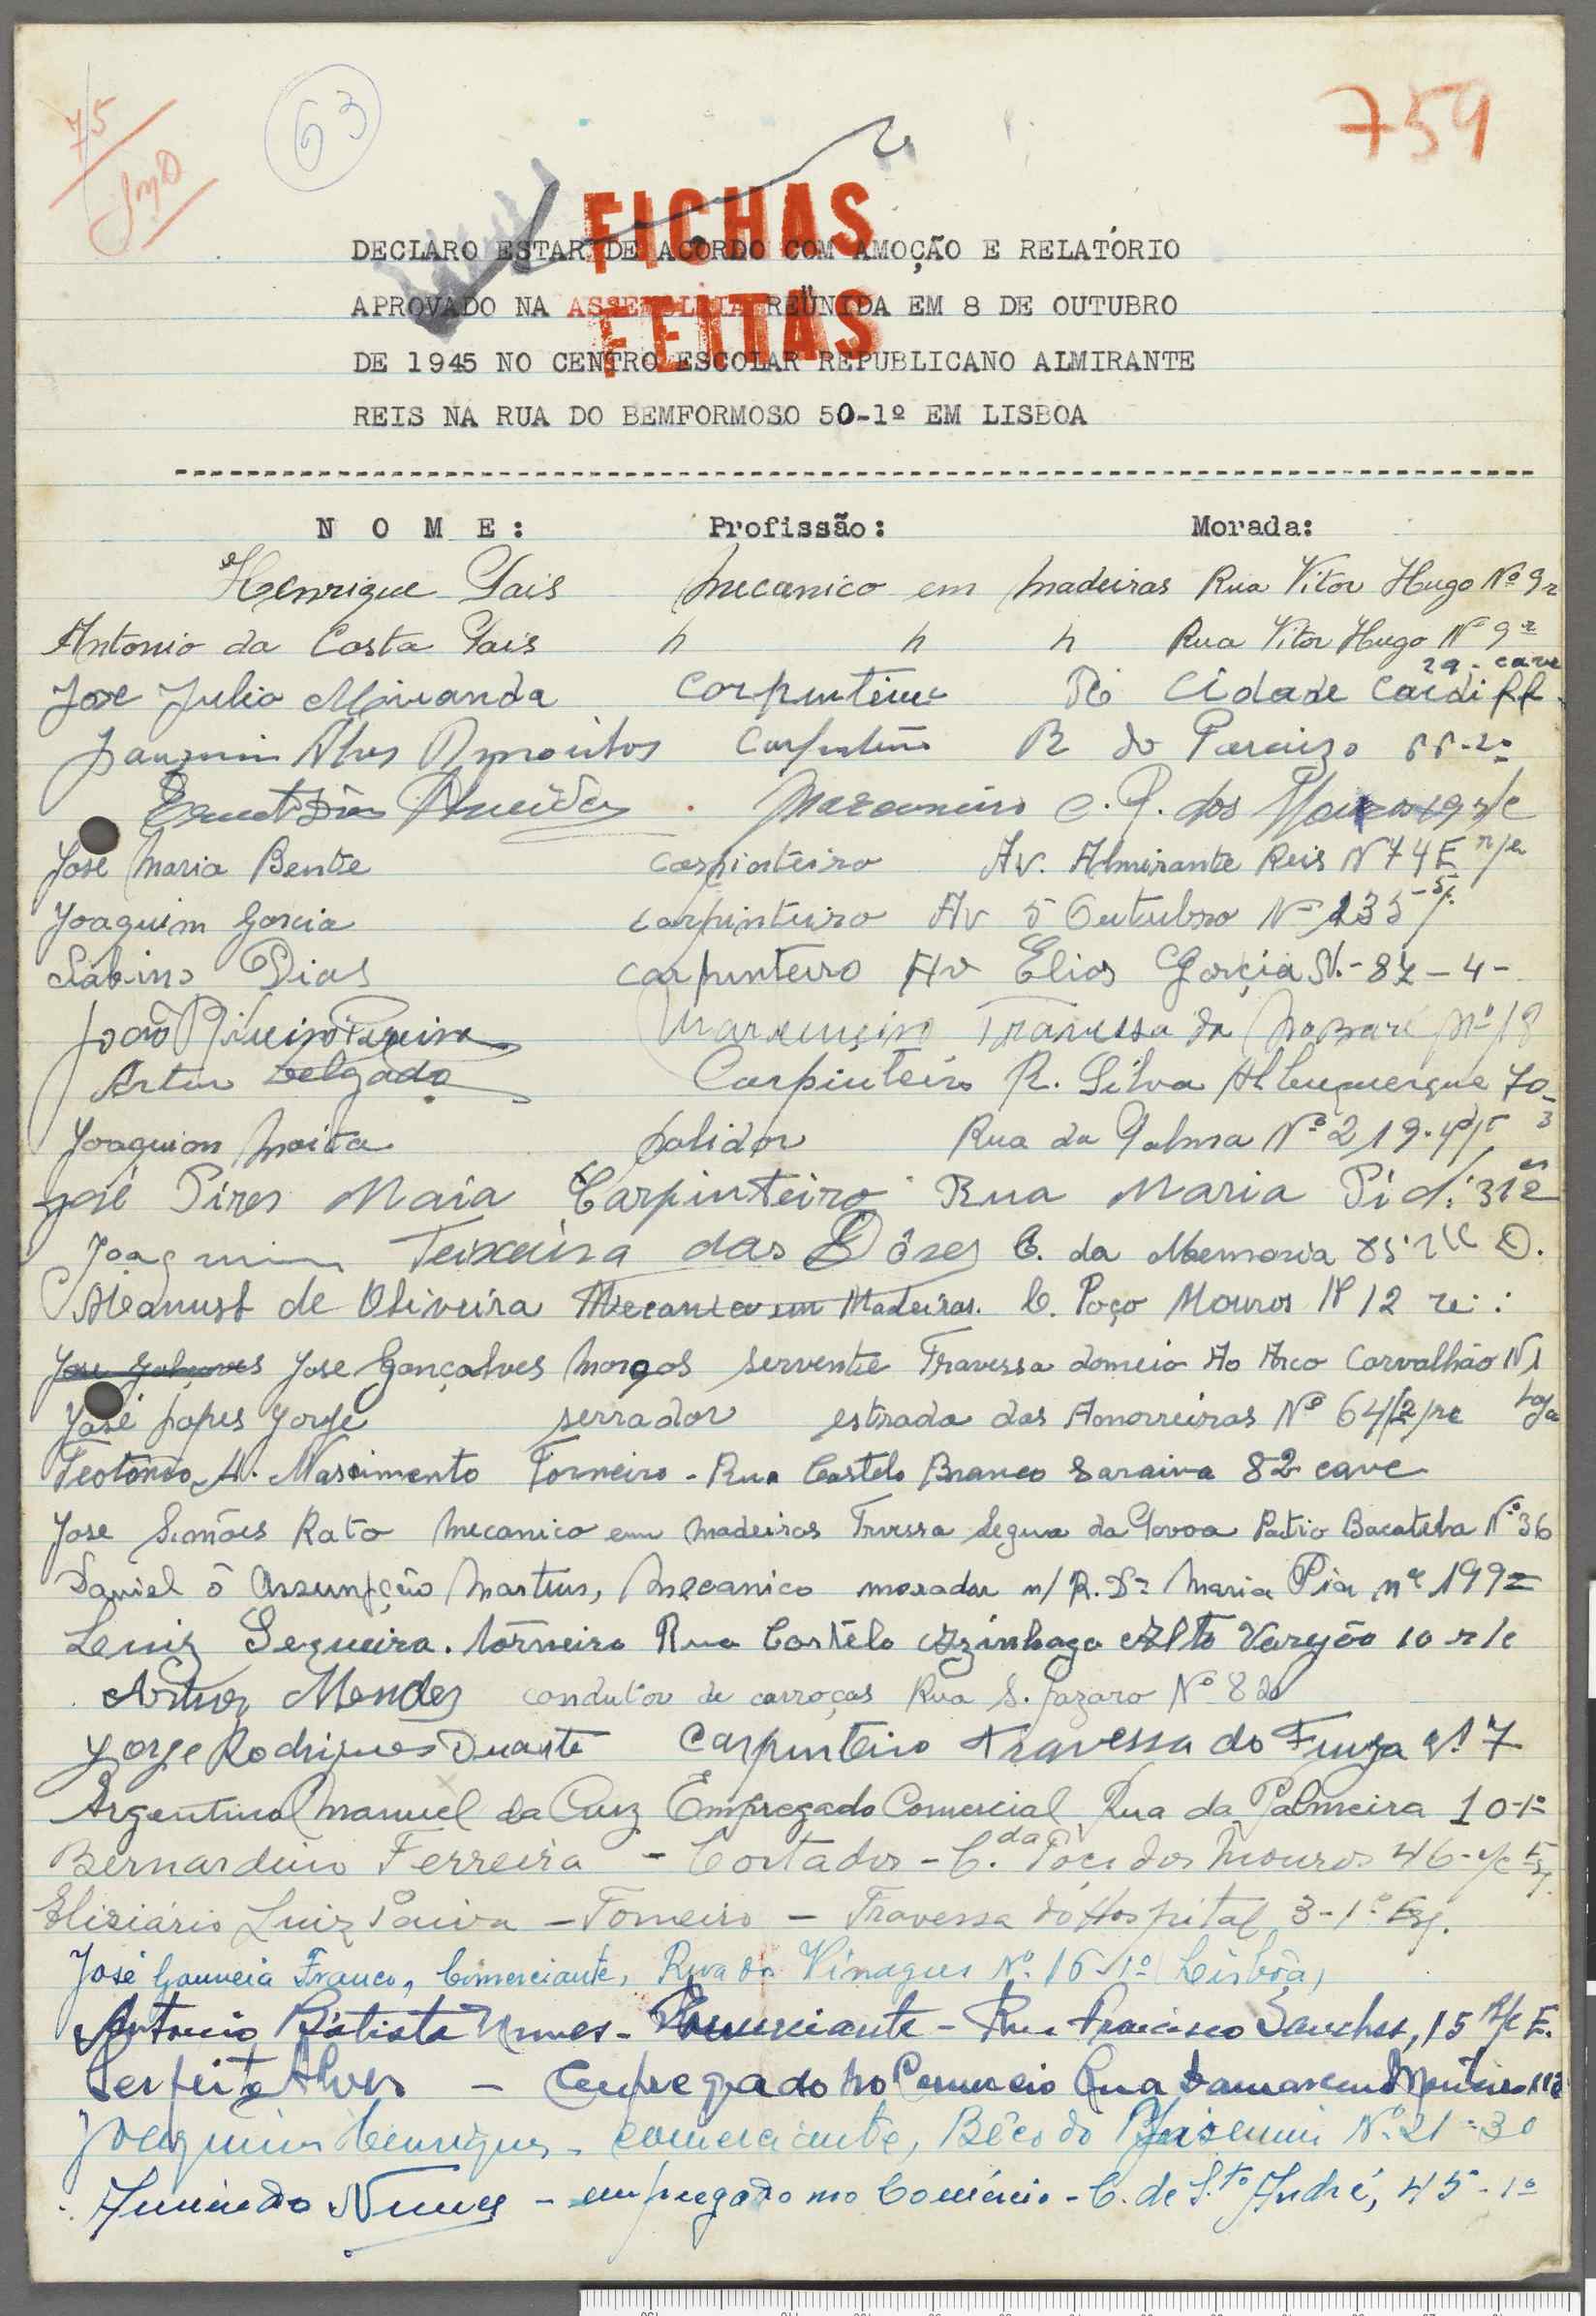 75
63
759
FICHAS
FEITAS
DECLARO ESTAR DE ACORDO COM AMOÇÃO E RELATÓRIO
APROVADO NA ASSEMBLEIA REÜNIDA EM 8 DE OUTUBRO
DE 1945 NO CENTRO ESCOLAR REPUBLICANO ALMIRANTE
REIS NA RUA DO BEMFORMOSO 50-1º EM LISBOA
N O M E: Profissão: Morada:
Henrique Pais Mecanico em Madeiras Rua Vitor Hugo Nº 9
Antonio da Costa Pais " " " Rua Vitor Hugo Nº 9
29-cave
José Julio Miranda Carpinteiro R. Cidade Cardiff
Alves Carpinteiro R do Paraizo
Almeida Marceneiro C. P. dos r/c
José Maria Bente Carpinteiro Av. Almirante Reis N 74 E r/c
Joaquim Garcia carpinteiro Av 5 Outubro Nº 135
Sabino Dias carpinteiro Av Elias Garçia N.-87-4-
João Ribeiro Pereira Marceneiro Travessa da Nazaré Nº 18
Artur Delgado Carpinteiro R. Silva Albuquerque 70-3
Joaquim Moita polidor Rua da Palma Nº 219-4º
José Pires Maia Carpinteiro Rua Maria Pi
Joaquim Teixeira das Dôres C. da Memoria D.
Manuel de Oliveira Mecanico em Madeiras. C. Poço Mouros Nº 12
Jose Gonçalves Jose Gonçalves Morgos servente Travessa domeio Ao Arco Carvalhão N 1
José Lopes Jorge serrador estrada das Amorreiras Nº 64 loja
Teotónio A. Nascimento Torneiro - Rua Castelo Branco Saraiva 82 cave
Jose Simões Rato Mecanico em Madeiras Travessa Legua da Povoa Patio Bacatela Nº 36
Daniel Assunpção Martins, Mecanico morador n/ R. Dª Maria Pia nº 199
Luiz Sequeira. Torneiro Rua Castélo Azinhaga Alto Varejão 10 r/c
Artur Mendes condutor de carroças Rua S. Lazaro Nº 82
Jorge Rodrigues Duarte Carpinteiro Travessa do Nº 7
Argentino Manuel da Cruz Empregado Comercial Rua da Palmeira 10-1º
Bernardino Ferreira - Cortador - C. da Poço dos Mouros 46-r/c Esq.
Elisiário Luiz Paiva - Torneiro - Travessa do Hospital 3-1º Esq.
José Gouveia Franco, Comerciante, Rua do Vinagre Nº 16-1º Lisbôa,
Antonio Batista Nunes - Comerciante - Rua Francisco Sanches, 15 r/c E.
Perfeito Alves - Empregado no Comercio Rua Damasceno Monteiro 112
Joaquim Henriques - comerciante, Bêco do Jasmim Nº 21-3º
Armindo Nunes - empregado no Comércio - C. de S.to André, 45-1º